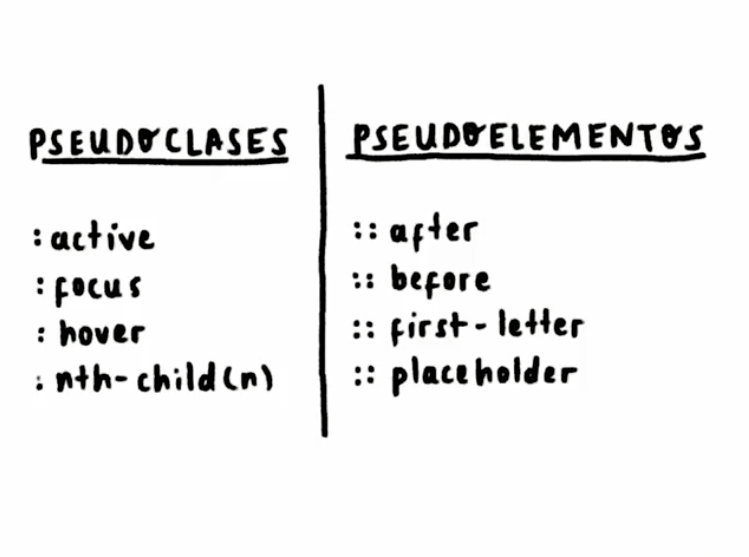 PSEUDOCLASES
:active
:focus
:hover
:nth-child(n)
PSEUDOELEMENTOS
:: after
:: before
:: first-letter
:: placeholder